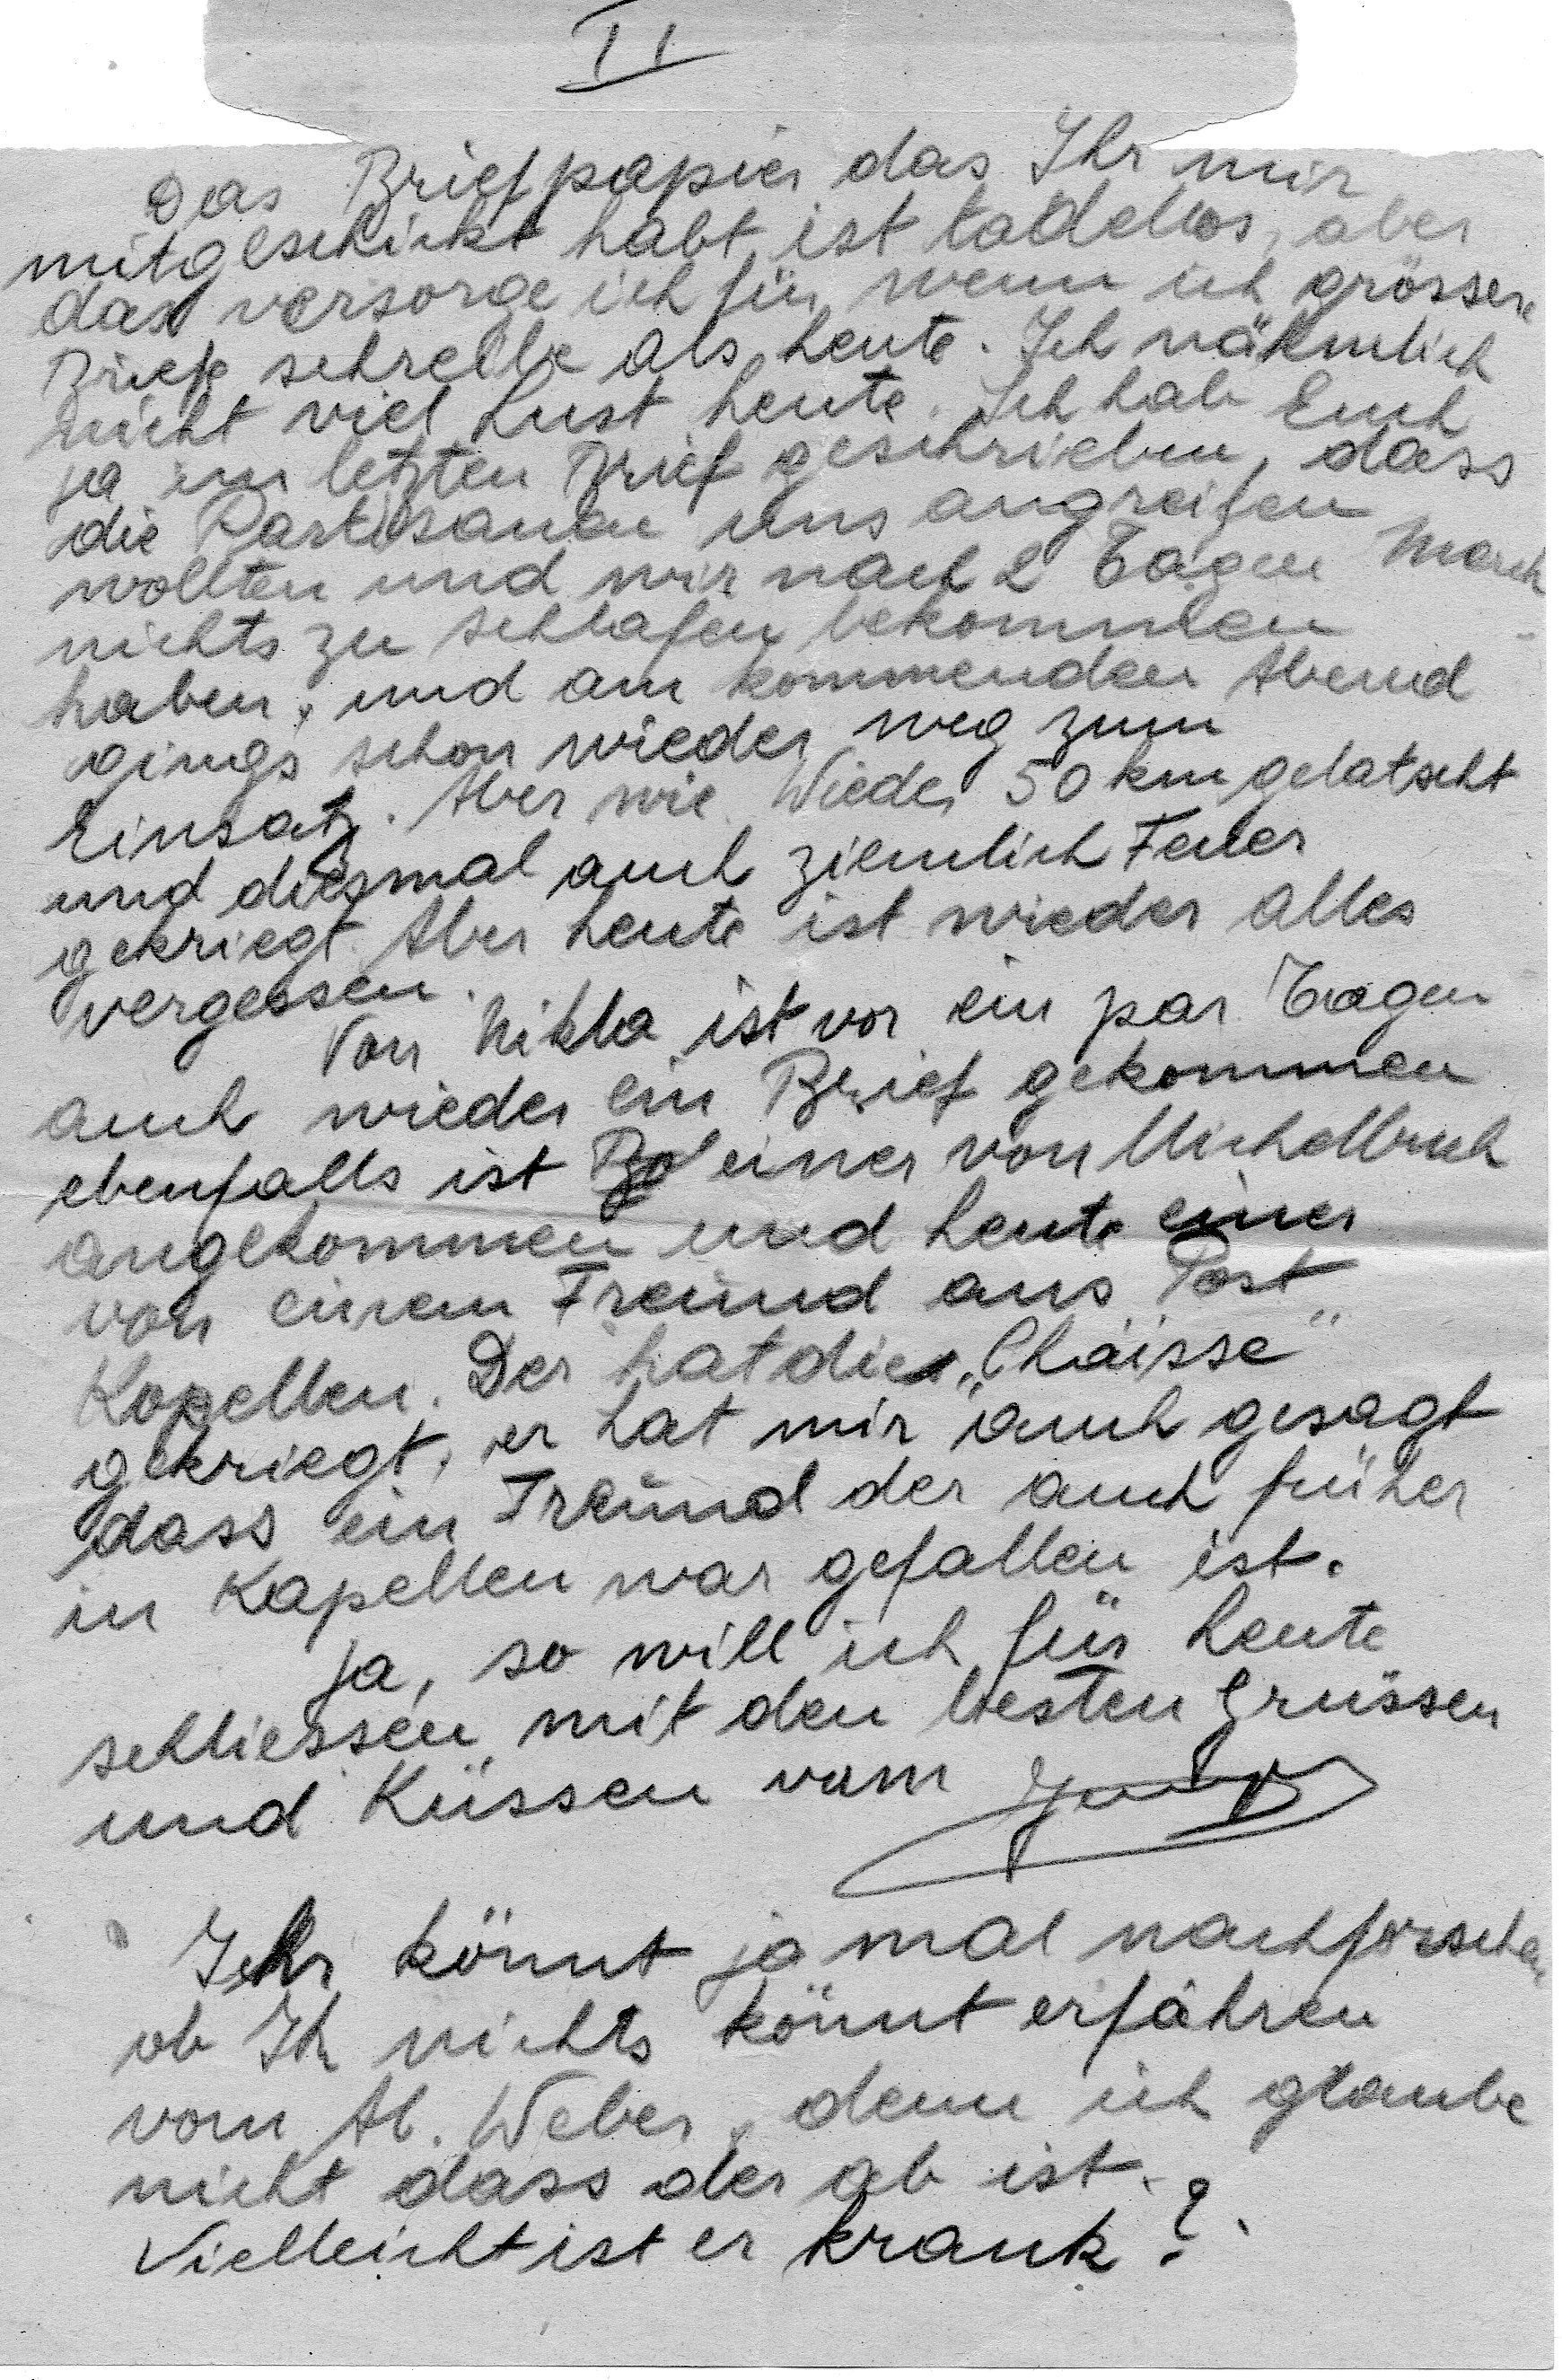 II
Das Briefpapier das Ihr mir
mitgeschickt habt, ist tadellos, aber
das versorge ich für, wenn ich grössere
Briefe schreibe als heute. Ich nähmlich
nicht viel Lust heute. Ich hab Euch
ja im letzten Brief geschrieben, dass
die Partisanen uns angreifen
wollten und wir nach 2 Tagen Marsch
nichts zu schlafen bekommen
haben, und am kommenden Abend
gings schon wieder weg zum
Einsatz. Aber wie. Wieder 50 km gelatscht
und diesmal auch ziemlich Feuer
gekriegt. Aber heute ist wieder alles
vergessen.
Von Nikla ist vor ein par Tagen
auch wieder ein Brief gekommen
ebenfalls ist einer von Michelbuch
angekommen und heute einer
von einem Freund aus Post
Kapellen. Der hat die „Chaisse"
gekriegt, er hat mir auch gesagt
dass ein Freund der auch früher
in Kapellen war gefallen ist.
Ja, so will ich für heute
schliessen mit den besten Grüssen
und Küssen vom
Ihr könnt ja mal nachforschen,
ob Ihr nichts könnt erfahren
vom Al. Weber, denn ich glaube
nicht dass der ab ist.
Vielleicht ist er krank?